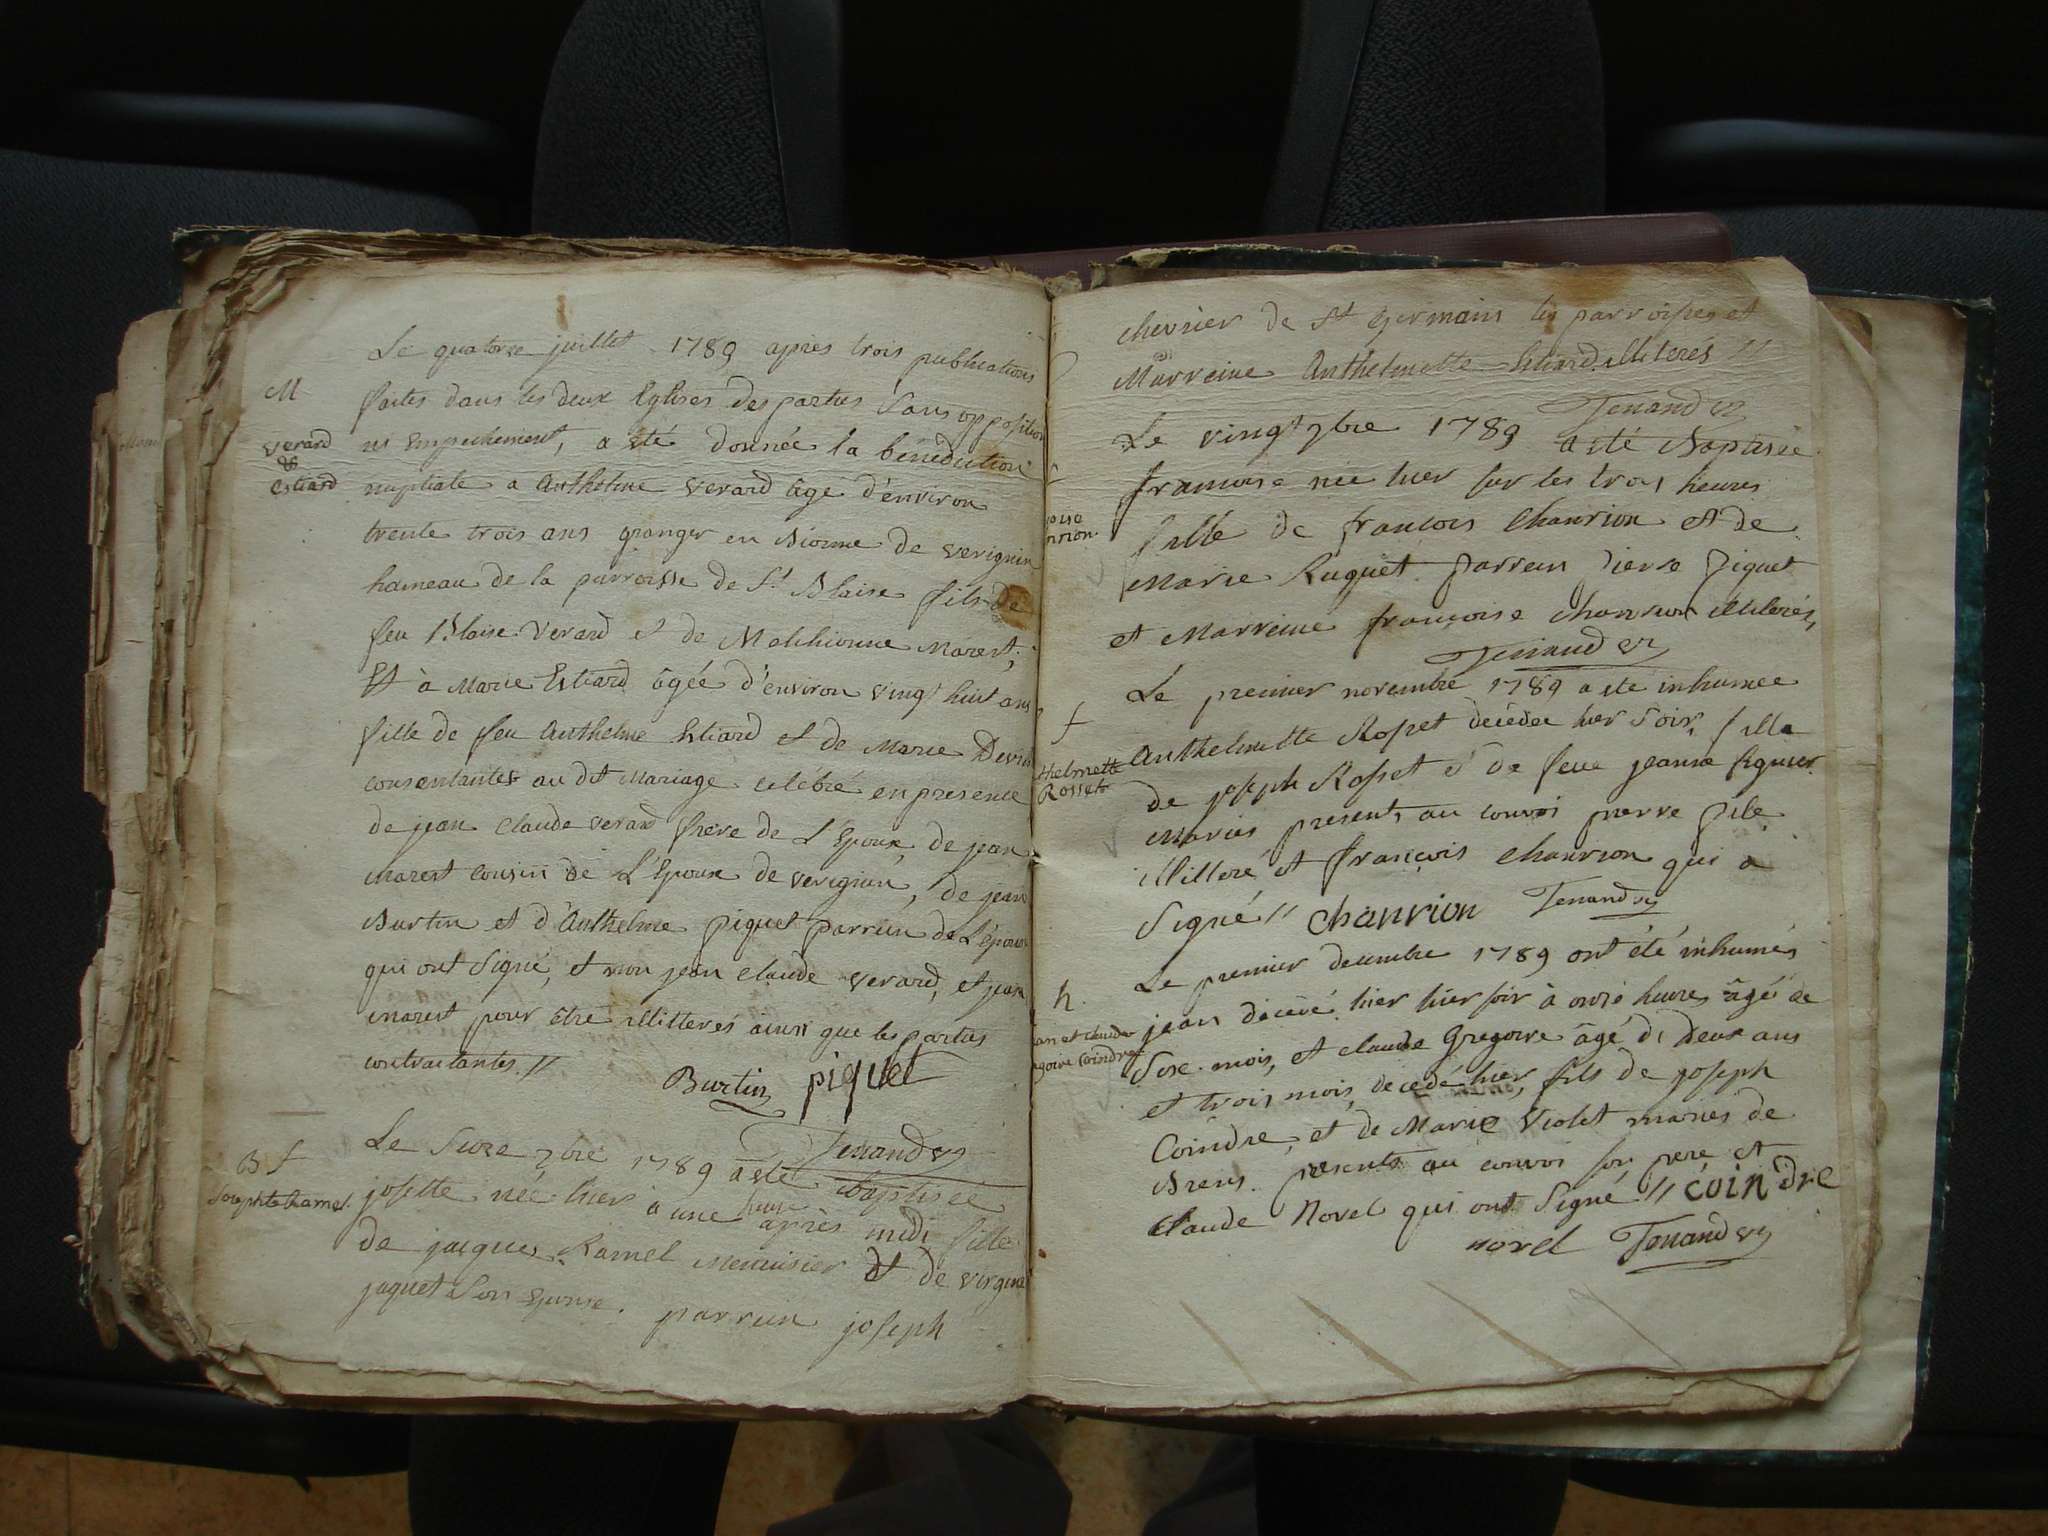 Le quatorze juillet 1789 après trois publications
M
faites dans les deux Eglises des parties sans opposition
verard
&
Estiard
ni Empechement, a été donnée la bénédiction
nuptiale a Anthelme verard âgé d'environ
trente trois ans granger en de verignin
hameau de la parroisse de St Blaise fils de
feu Blaise verard et de Marest,
Et à Marie Estiard âgée d'environ vingt huit ans
fille de feu Anthelme Estiard et de Marie
consentantes au dit Mariage célébré en presence
de jean claude verard frère de L'Epoux, de jean
marest cousin de L'Epoux de verignin, de jean
Burtin et d'Anthelme piquet parrein de L'épouse
qui ont Signé, et non jean claude verard, et jean
marest pour être illitterés ainsi que les parties
contractantes //
Burtin piquet
Tenand
B f
josephte Ramel
Le Seize 7bre 1789 a été Baptisée
josette née hier à une heure après midi fille
de jacques Ramel Menuisier et de virginie
jaquet Son Epouse. parrein joseph
chevrier de St Germain les parroisses et
Marreine Anthelmette Estiard illiterés //
Tenand
Le vingt 7bre 1789 a été Baptisée
francoise née hier sur les trois heures
oise
nrion
fille de francois Chanrion et de
Marie Ruguet parrein Pierre Piguet
et Marreine françoise chanrion illiterés,
Tenand
Le premier novembre 1789 a été inhumée
f
thelmette
Rosset
Anthelmette Rosset décédée hier Soir, fille
de joseph Rosset et de feue jeanne
Mariés presents au convoi pierre
illitteré et françois Chanrion qui a
Signé // chanrion Tenand
h.
an et claude
goire Coindre
Le premier decembre 1789 ont été inhumés
jean décédé hier hier soir à onze heures âgé de
Sixe mois, et claude Gregoire âgé de Deux ans
et trois mois, decedé hier, fils de joseph
Coindre, et de Marie Violet mariés de
Brens. presents au convoi son pere et
Claude Novel qui ont Signé // coindre
novel Tenand